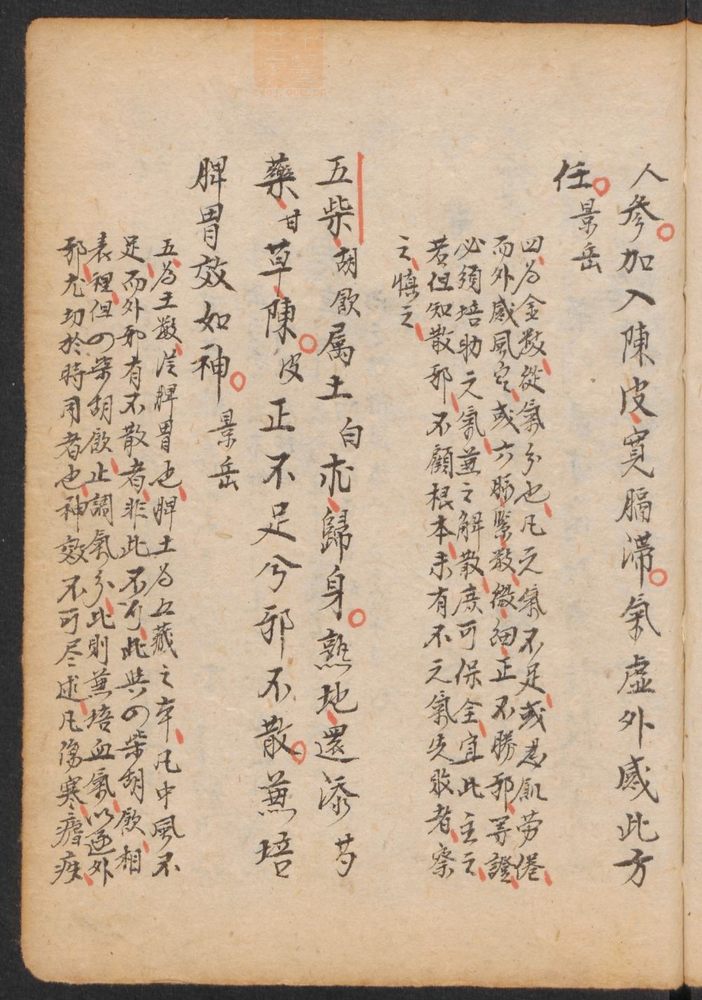 人參加入陳皮寬膈滯氣虛外感此方
任景岳
四為金數從氣分也凡元氣不足或忍飢勞倦
而外感風寒或六脈緊數微細正不勝邪等證
必須培助元氣兼之解散庶可保全宜此主之
若但知散邪不顧根本未有不元氣失敗者察
之慎之
五柴胡飲屬土白朮歸身熟地還添芍
藥甘草陳皮正不足兮邪不散兼培
脾胃效如神景岳
五為土數從脾胃也脾土為五藏之本凡中氣不
足而外邪有不散者非此不可此與四柴胡飲相
表裡但四柴胡飲止調氣分此則兼培血氣以逐外
邪尤切於時用者也神效不可尽述凡傷寒瘧疾